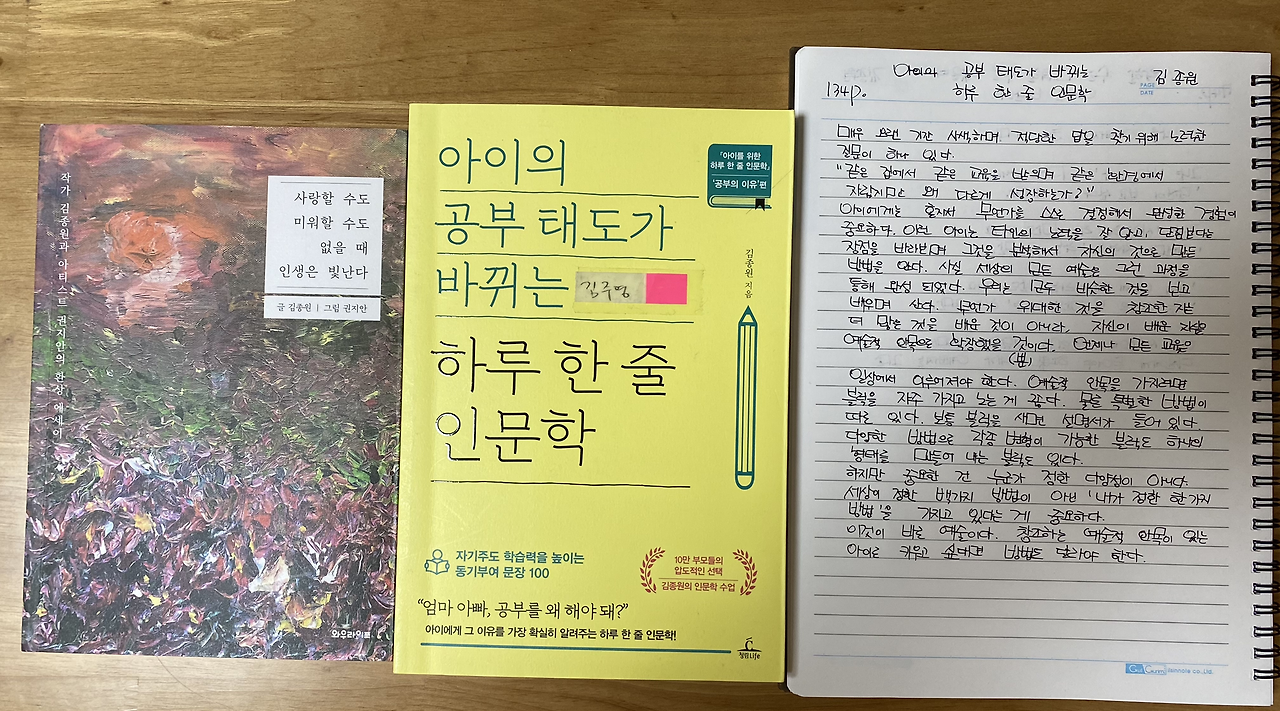 작가 김종원과 아티스트 권지안의 환상 에세이
사랑할 수도
미워할 수도
없을 때
인생은 빛난다
글 김종원 | 그림 권지안
와우라이프
아이의
공부 태도가
바뀌는
김주영
하루 한 줄
인문학
「아이를 위한
하루 한 줄 인문학」
'공부의 이유'편
김종원 지음
자기주도 학습력을 높이는
동기부여 문장 100
10만 부모들의
압도적인 선택
김종원의 인문학 수업
"엄마 아빠, 공부를 왜 해야 돼?"
아이에게 그 이유를 가장 확실히 알려주는 하루 한 줄 인문학!
청림Life
아이의 공부 태도가 바뀌는 김종원
134p. 하루 한 줄 인문학
PAGE
DATE
매우 오랜 기간 사색하며 적당한 답을 찾기 위해 노력한
질문이 하나 있다.
"같은 집에서 같은 교육을 받으며 같은 환경에서
자랐지만 왜 다르게 성장하는가?"
아이에게는 혼자서 무언가를 스스로 결정해서 완성한 경험이
중요하다. 이런 아이는 타인의 노력을 잘 알고, 단점보다는
장점을 바라보며 그것을 분석해서 자신의 것으로 만드는
방법을 안다. 사실 세상의 모든 예술은 그런 과정을
통해 완성 되었다. 우리는 모두 비슷한 것을 보고
배우며 산다. 누군가 위대한 것을 창조한 것은
더 많은 것을 배운 것이 아니라, 자신이 배운 것을
예술적 안목으로 확장했을 것이다. 언제나 모든 교육은
(삶)
일상에서 이루어져야 한다. 예술적 안목을 가지려면
블럭을 자주 가지고 노는 게 좋다. 물론 특별한 방법이
따로 있다. 보통 블럭을 사면 설명서가 들어 있다.
다양한 방법으로 각종 변형이 가능한 블럭도 하나의
형태를 만들어 내는 블럭도 있다.
하지만 중요한 건 누군가 정한 다양성이 아니다.
세상이 정한 백가지 방법이 아닌 '내가 정한 한가지
방법'을 가지고 있다는 게 중요하다.
이것이 바로 예술이다. 창조하는 예술적 안목이 있는
아이로 키우고 싶다면 방법도 달라야 한다.